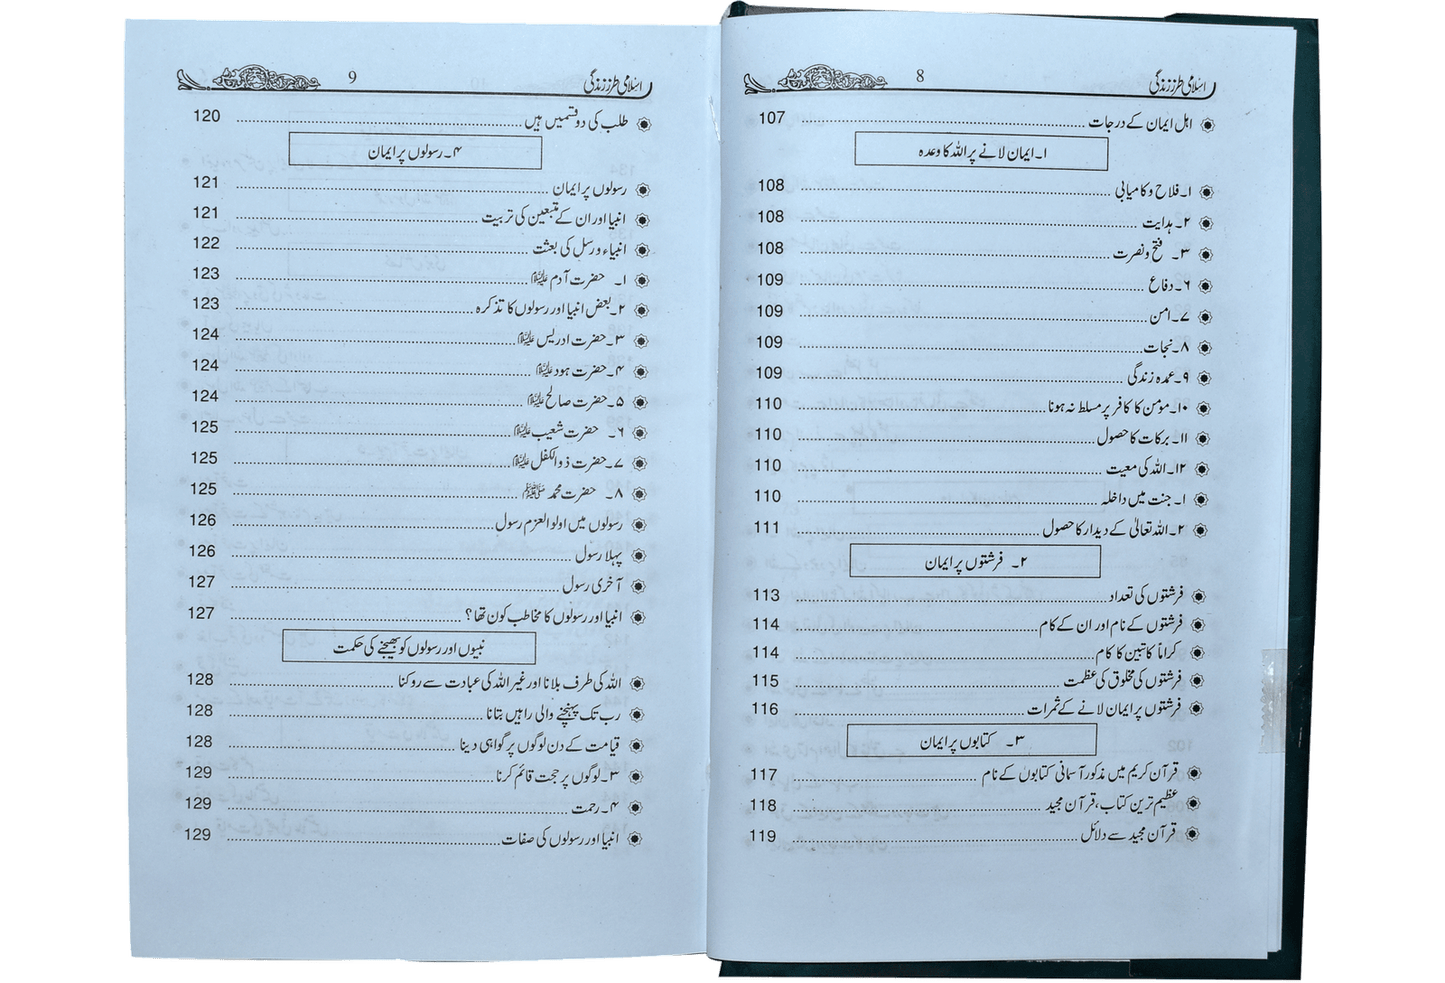 اسلامی طرز زندگی 8
اهل ایمان کے درجات 107
۱۔ ایمان لانے پر اللہ کا وعدہ
۱۔ فلاح و کامیابی 108
۲۔ ہدایت 108
۳۔ فتح و نصرت 108
۶۔ دفاع 109
۷۔ امن 109
۸۔ نجات 109
۹۔ عمدہ زندگی 109
۱۰۔ مؤمن کا کافر پر مسلط نہ ہونا 110
۱۱۔ برکات کا حصول 110
۱۲۔ اللہ کی معیت 110
۱۔ جنت میں داخلہ 110
۲۔ اللہ تعالیٰ کے دیدار کا حصول 111
۲۔ فرشتوں پر ایمان
فرشتوں کی تعداد 113
فرشتوں کے نام اور ان کے کام 114
کراماً کاتبین کا کام 114
فرشتوں کی مخلوق کی عظمت 115
فرشتوں پر ایمان لانے کے ثمرات 116
۳۔ کتابوں پر ایمان
قرآن کریم میں مذکور آسمانی کتابوں کے نام 117
عظیم ترین کتاب، قرآن مجید 118
قرآن مجید سے دلائل 119
اسلامی طرز زندگی 9
طلب کی دو قسمیں ہیں 120
۴۔ رسولوں پر ایمان
رسولوں پر ایمان 121
انبیا اور ان کے متبعین کی تربیت 121
انبیاء و رسل کی بعثت 122
۱۔ حضرت آدم علیہ السلام 123
۲۔ بعض انبیا اور رسولوں کا تذکرہ 123
۳۔ حضرت ادریس علیہ السلام 124
۴۔ حضرت ہود علیہ السلام 124
۵۔ حضرت صالح علیہ السلام 124
۶۔ حضرت شعیب علیہ السلام 125
۷۔ حضرت ذوالکفل علیہ السلام 125
۸۔ حضرت محمد ﷺ 125
رسولوں میں اولوالعزم رسول 126
پہلا رسول 126
آخری رسول 127
انبیا اور رسولوں کا مخاطب کون تھا؟ 127
نبیوں اور رسولوں کو بھیجنے کی حکمت
اللہ کی طرف بلانا اور غیر اللہ کی عبادت سے روکنا 128
رب تک پہنچنے والی راہیں بتانا 128
قیامت کے دن لوگوں پر گواہی دینا 128
۳۔ لوگوں پر حجت قائم کرنا 129
۴۔ رحمت 129
انبیا اور رسولوں کی صفات 129